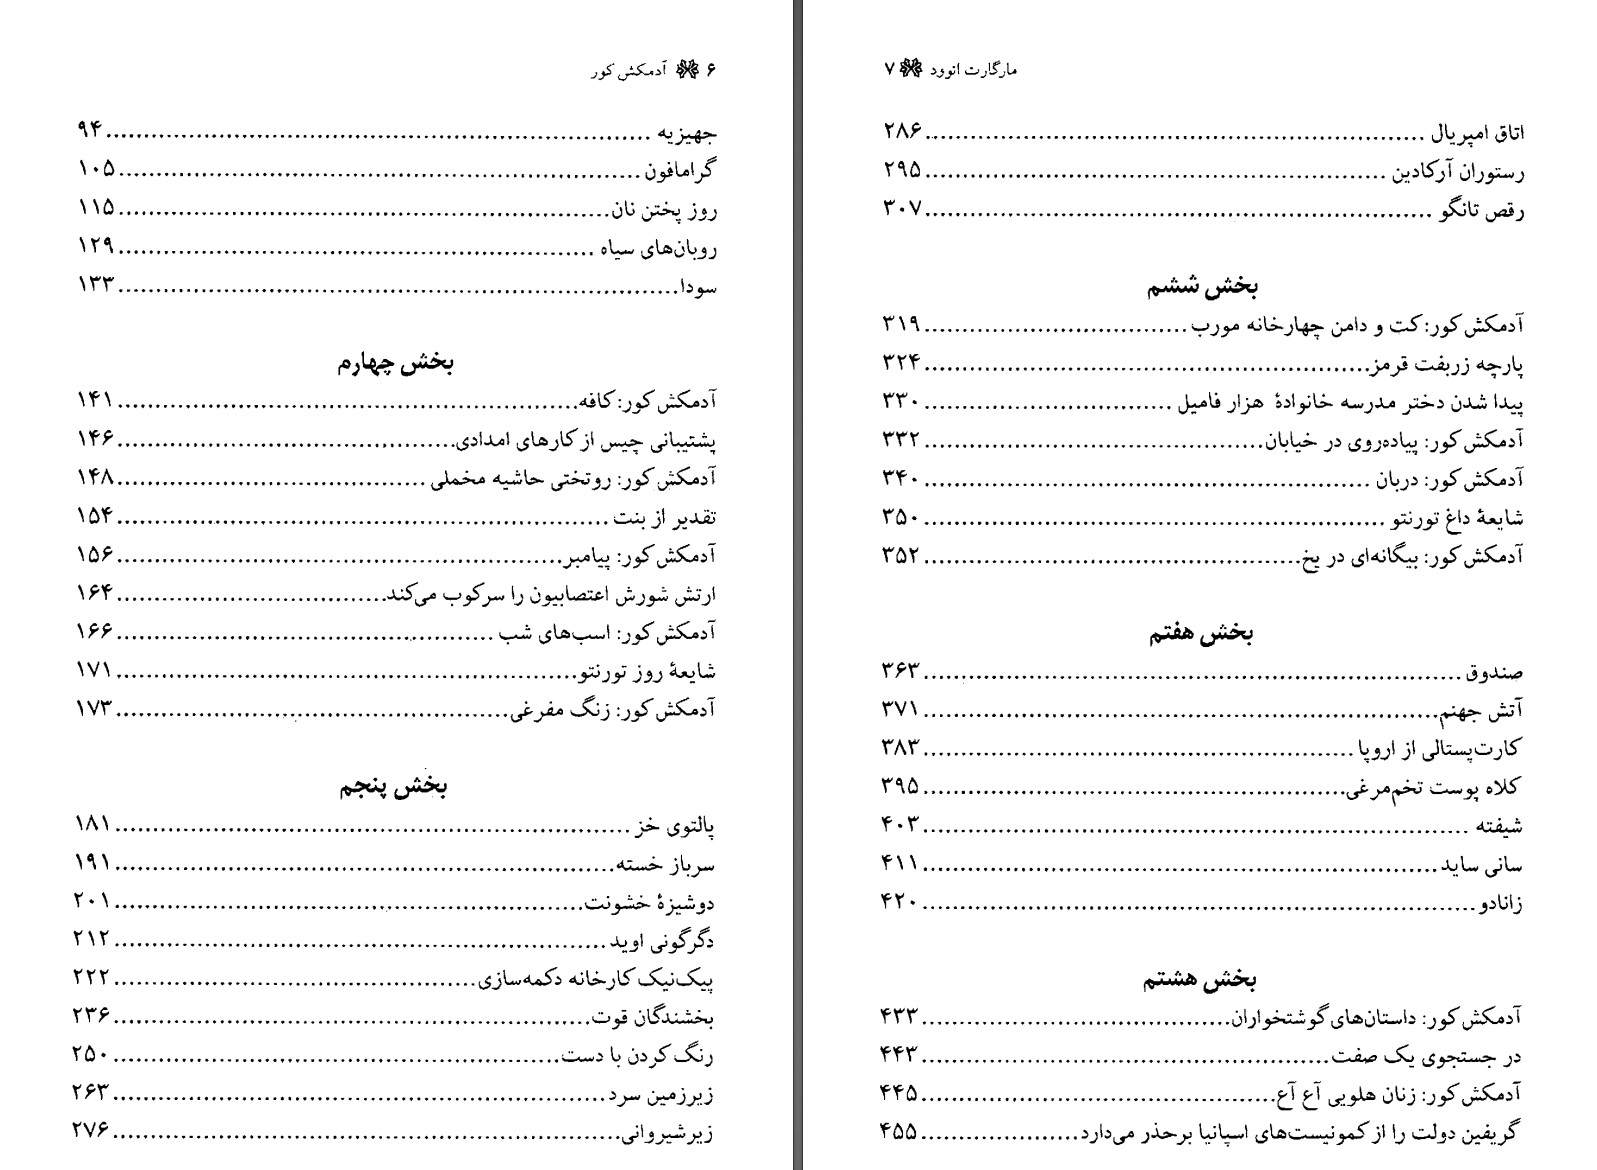 ۶ آدمکش کور
جهیزیه ........ ۹۴
گرامافون ........ ۱۰۵
روز پختن نان ........ ۱۱۵
روبان‌های سیاه ........ ۱۲۹
سودا ........ ۱۳۳
بخش چهارم
آدمکش کور: کافه ........ ۱۴۱
پشتیبانی چیس از کارهای امدادی ........ ۱۴۶
آدمکش کور: روتختی حاشیه مخملی ........ ۱۴۸
تقدیر از بنت ........ ۱۵۴
آدمکش کور: پیامبر ........ ۱۵۶
ارتش شورش اعتصابیون را سرکوب می‌کند ........ ۱۶۴
آدمکش کور: اسب‌های شب ........ ۱۶۶
شایعهٔ روز تورنتو ........ ۱۷۱
آدمکش کور: زنگ مفرغی ........ ۱۷۳
بخش پنجم
پالتوی خز ........ ۱۸۱
سرباز خسته ........ ۱۹۱
دوشیزهٔ خشونت ........ ۲۰۱
دگرگونی اوید ........ ۲۱۲
پیک‌نیک کارخانه دکمه‌سازی ........ ۲۲۲
بخشندگان قوت ........ ۲۳۶
رنگ کردن با دست ........ ۲۵۰
زیرزمین سرد ........ ۲۶۳
زیرشیروانی ........ ۲۷۶
مارگارت اتوود ۷
اتاق امپریال ........ ۲۸۶
رستوران آرکادین ........ ۲۹۵
رقص تانگو ........ ۳۰۷
بخش ششم
آدمکش کور: کت و دامن چهارخانه مورب ........ ۳۱۹
پارچه زربفت قرمز ........ ۳۲۴
پیدا شدن دختر مدرسه خانوادهٔ هزار فامیل ........ ۳۳۰
آدمکش کور: پیاده‌روی در خیابان ........ ۳۳۲
آدمکش کور: دربان ........ ۳۴۰
شایعهٔ داغ تورنتو ........ ۳۵۰
آدمکش کور: بیگانه‌ای در یخ ........ ۳۵۲
بخش هفتم
صندوق ........ ۳۶۳
آتش جهنم ........ ۳۷۱
کارت‌پستالی از اروپا ........ ۳۸۳
کلاه پوست تخم‌مرغی ........ ۳۹۵
شیفته ........ ۴۰۳
سانی ساید ........ ۴۱۱
زانادو ........ ۴۲۰
بخش هشتم
آدمکش کور: داستان‌های گوشتخواران ........ ۴۳۳
در جستجوی یک صفت ........ ۴۴۳
آدمکش کور: زنان هلویی آع آع ........ ۴۴۵
گریفین دولت را از کمونیست‌های اسپانیا برحذر می‌دارد ........ ۴۵۵